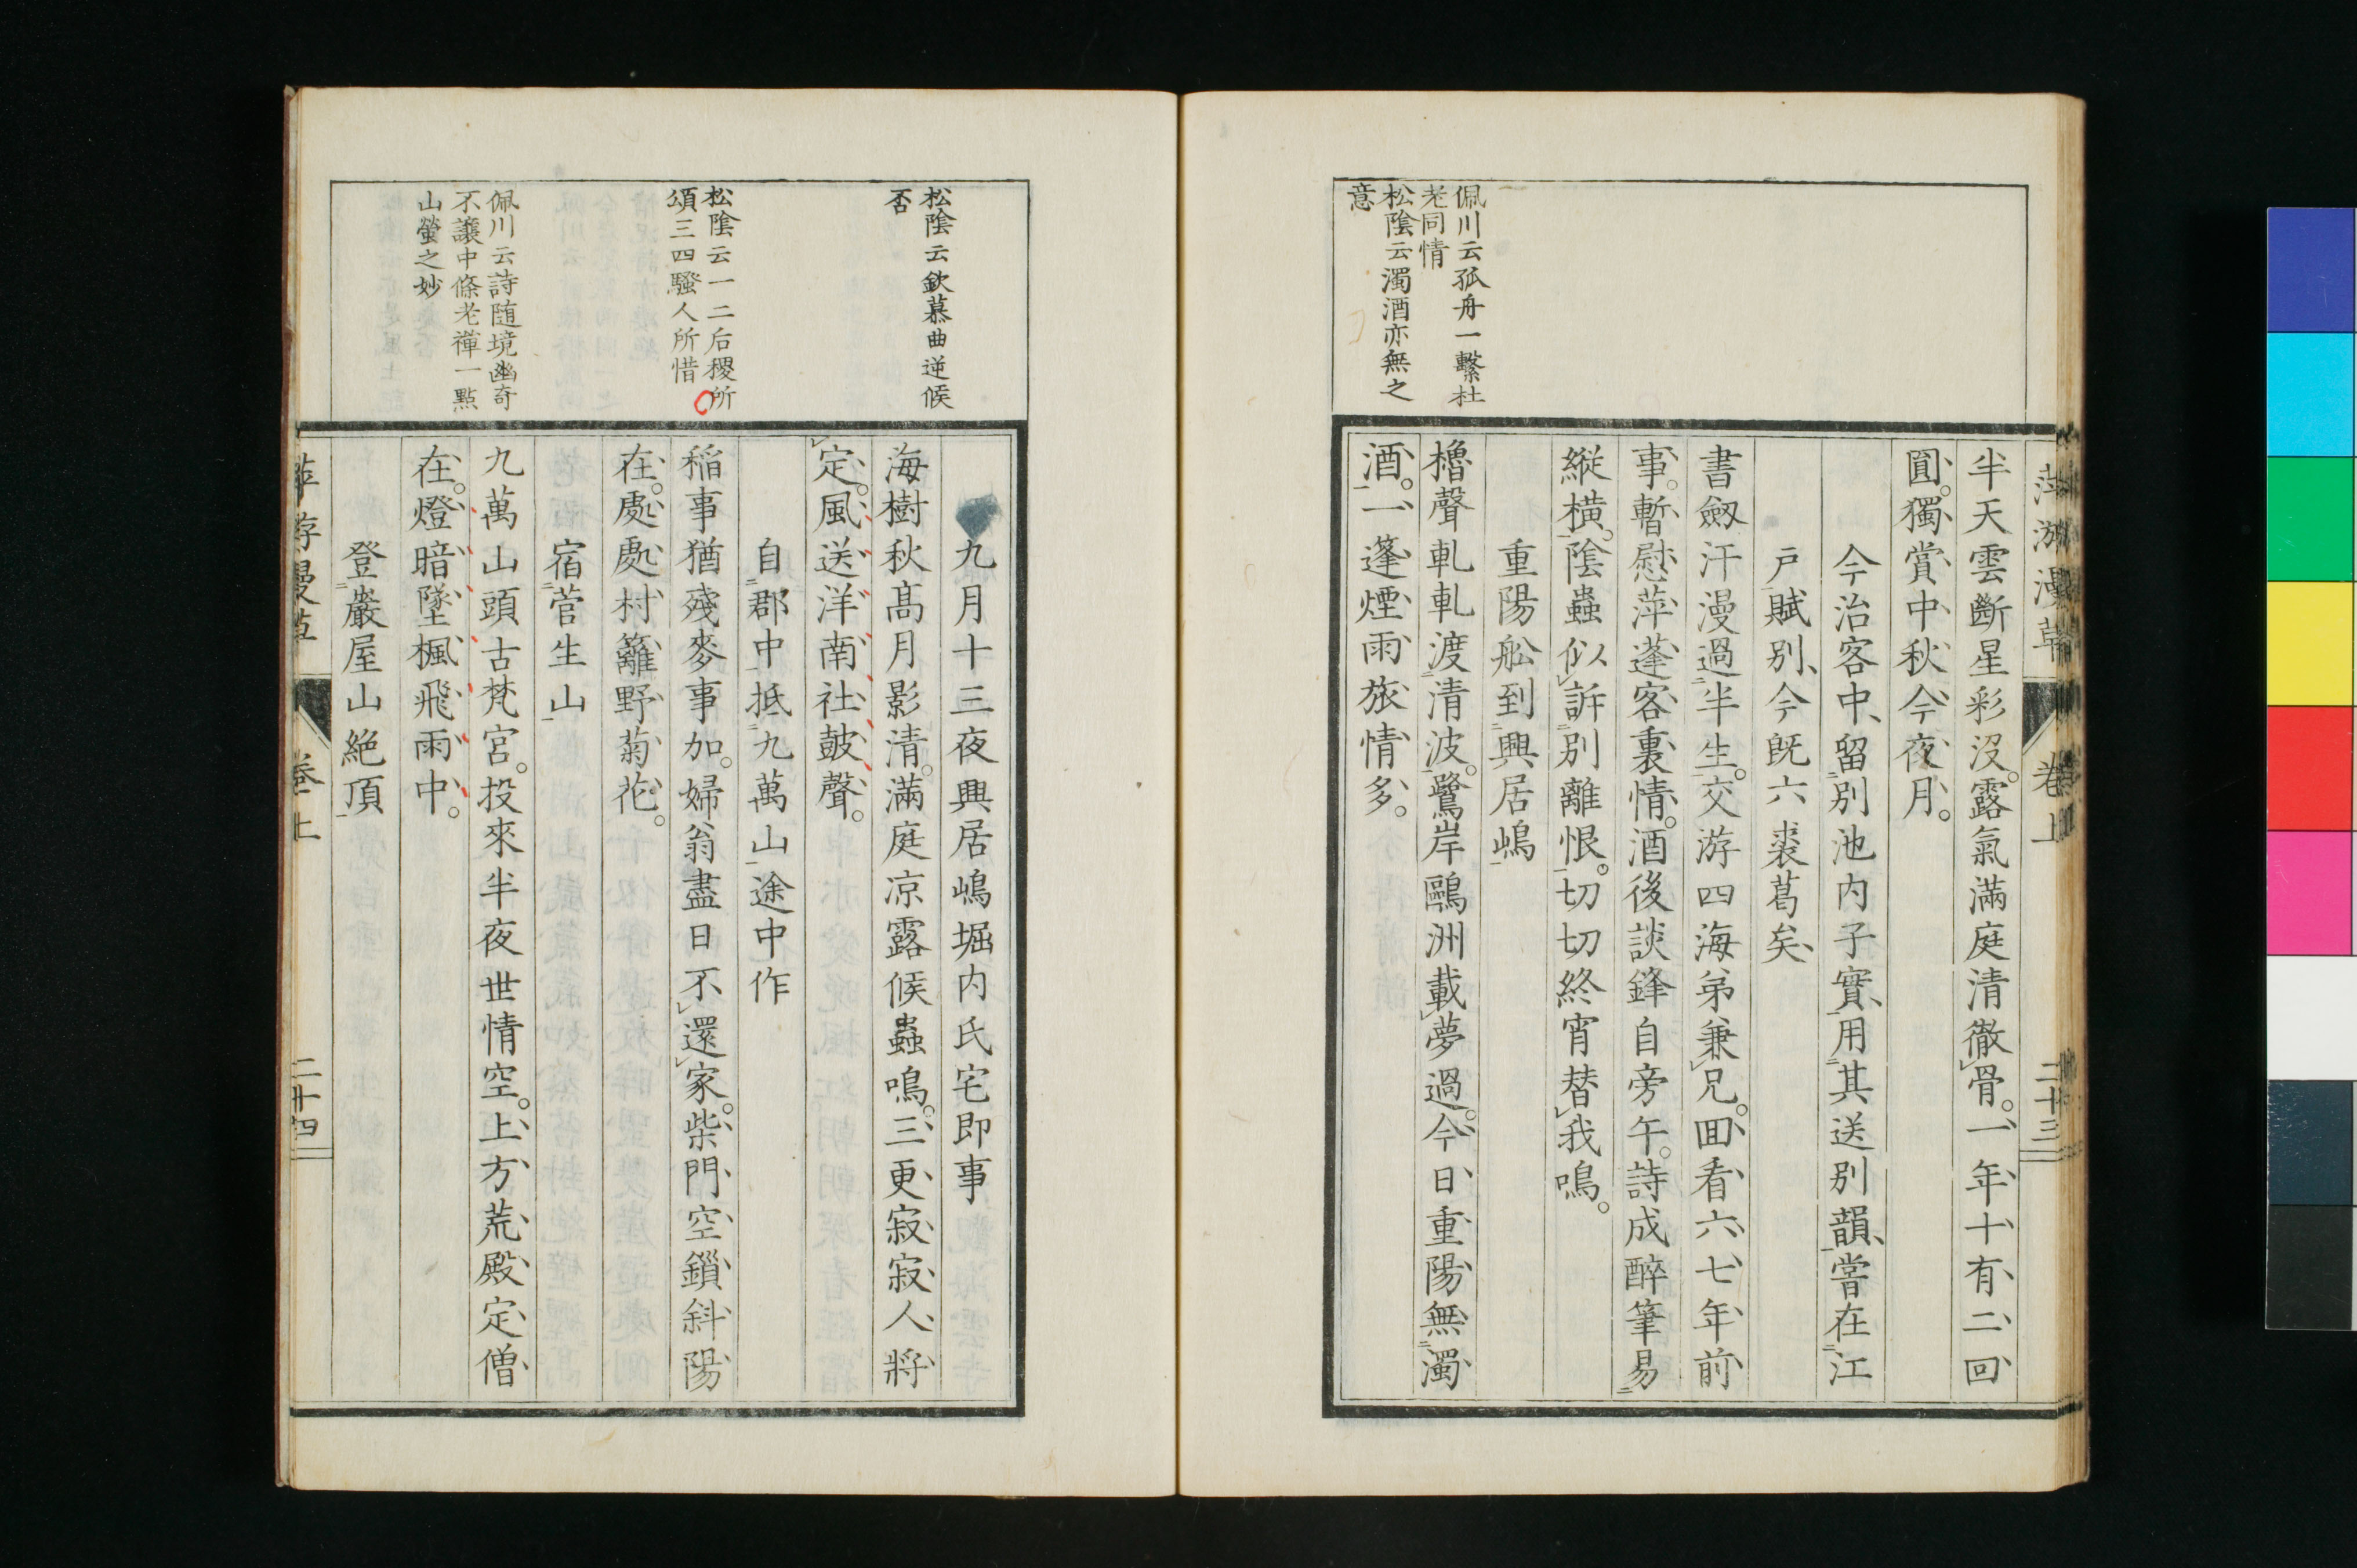 萍游漫草 卷上 二十三
佩川云孤舟一繫杜
老同情
松陰云濁酒亦無之
意
半天雲斷星彩沒。露氣滿庭清徹骨。一年十有二回
圓。獨賞中秋今夜月。
今治客中、留別池内子實、用其送別韻、嘗在江
戸賦別、今既六裘葛矣、
書劔汗漫過半生。交游四海弟兼兄。回看六七年前
事。暫慰萍蓬客裏情。酒後談鋒自旁午。詩成醉筆易
縱横。陰蟲似訴別離恨。切切終宵替我鳴。
重陽舩到興居嶋
櫓聲軋軋渡清波。鷺岸鷗洲載夢過。今日重陽無濁
酒。一蓬煙雨旅情多。
松陰云欽慕曲逆候
否
松陰云一二后稷所
頌三四騷人所惜
佩川云詩随境幽奇
不讓中條老禪一點
山螢之妙
九月十三夜興居嶋堀内氏宅即事
海樹秋髙月影清。滿庭凉露候蟲鳴。三更寂寂人將
定。風送洋南社皷聲。
自郡中抵九萬山途中作
稲事猶殘麥事加。婦翁盡日不還家。柴門空鎻斜陽
在。處處村籬野菊花。
宿菅生山
九萬山頭古梵宮。投來半夜世情空。上方荒殿定僧
在。燈暗墜楓飛雨中。
登巌屋山絶頂
萍游漫草 卷上 二十四